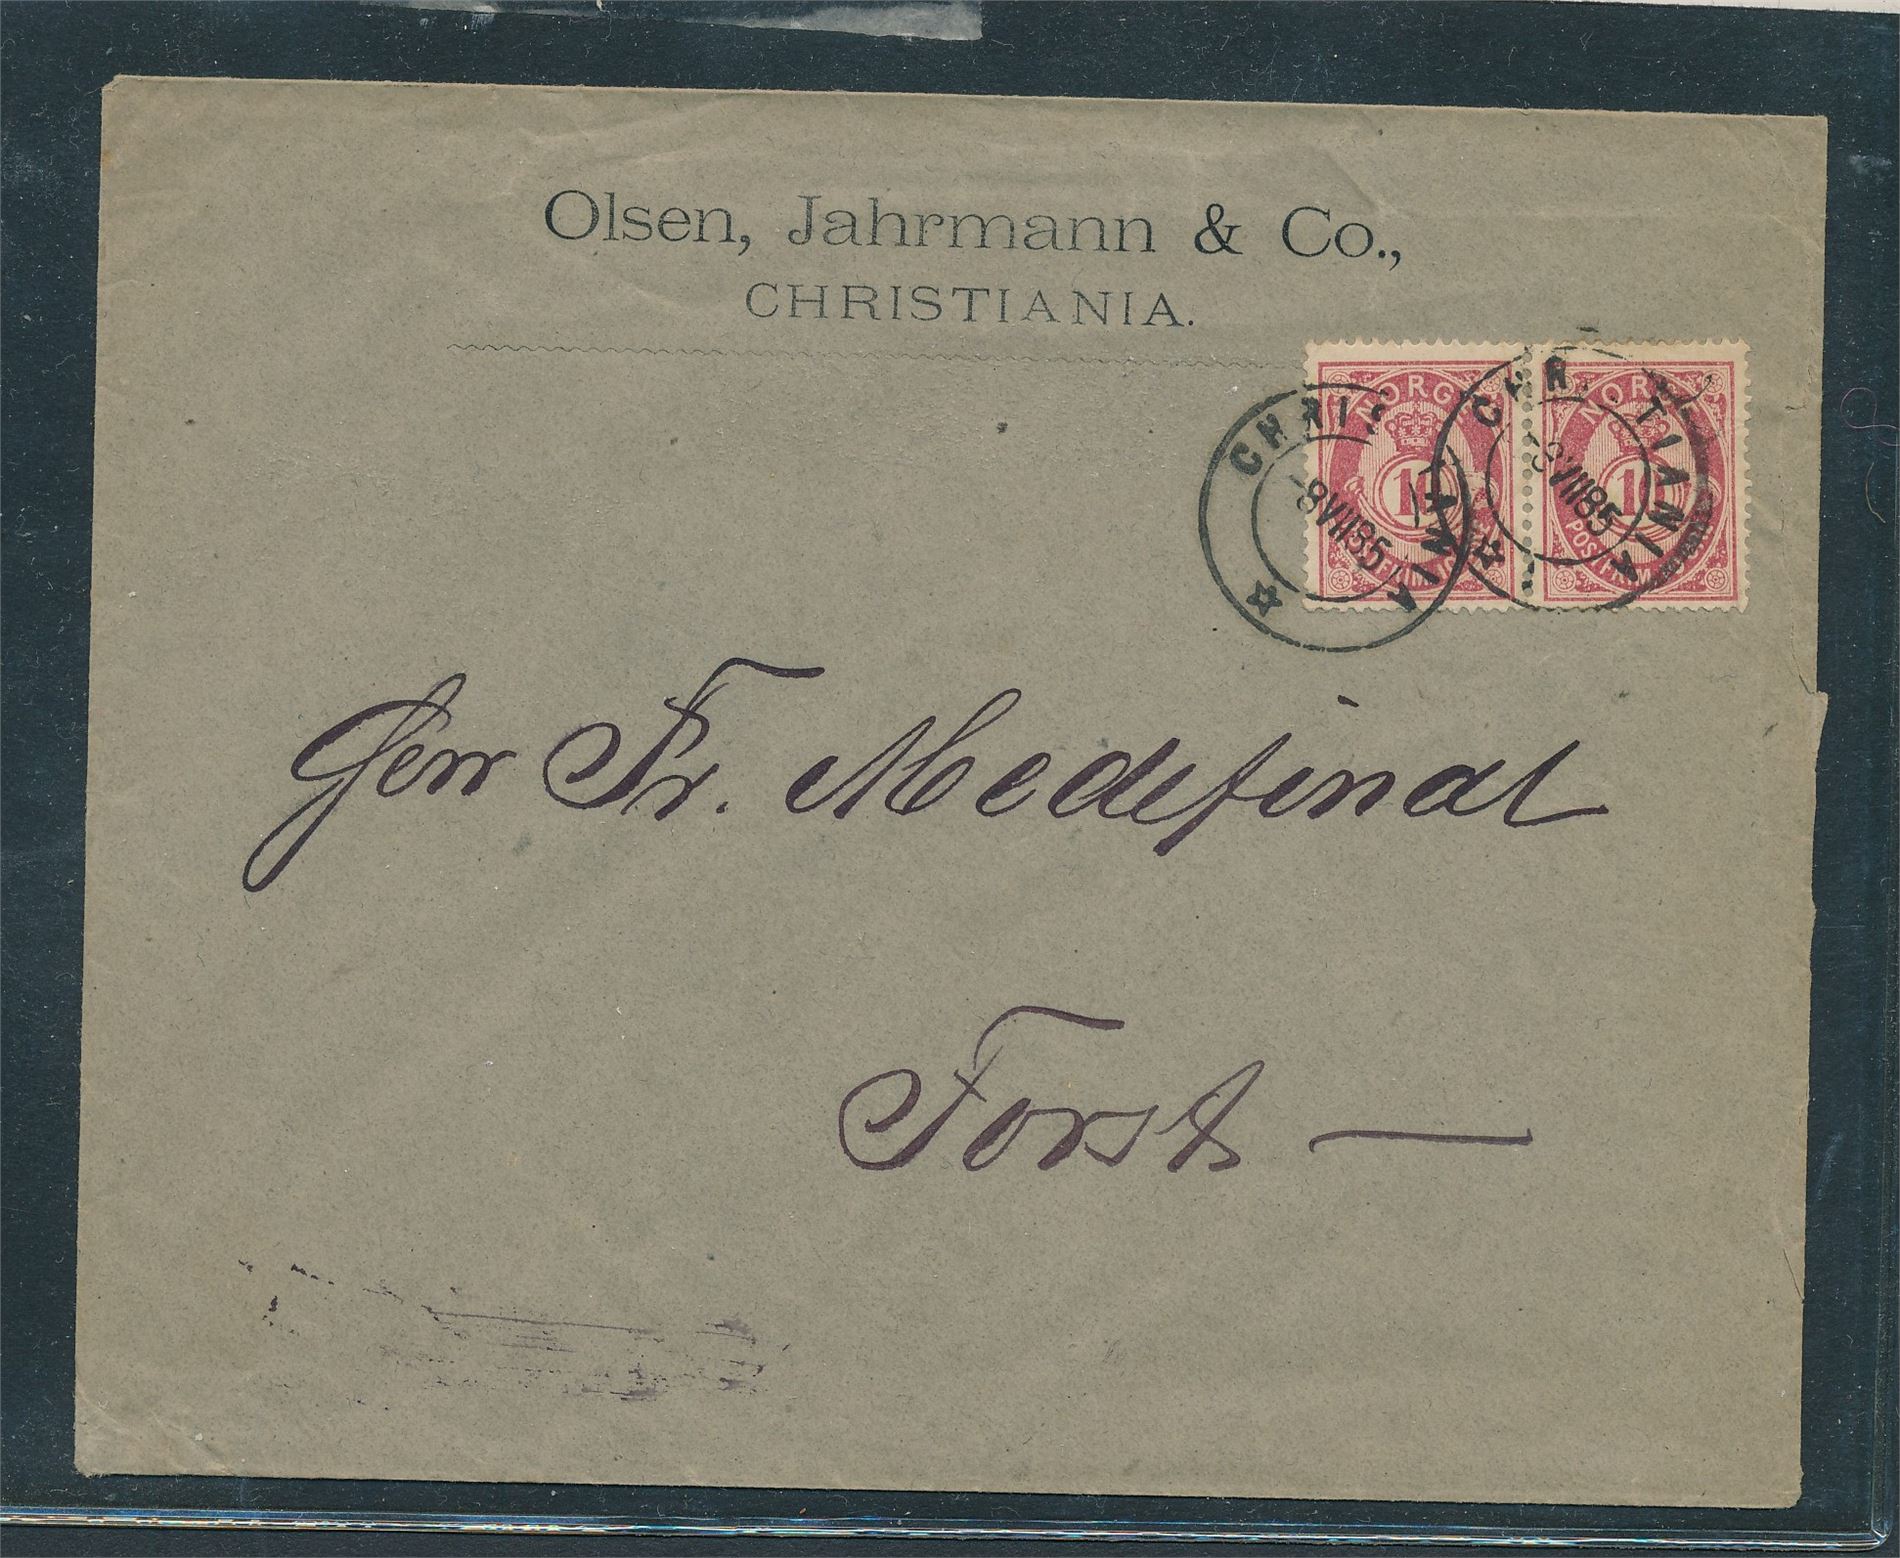 Olsen, Jahrmann & Co.,
CHRISTIANIA.
NORGE NORGE
10 10
CHRISTIANIA CHRISTIANIA
8 VIII 85 8 VIII 85
POSTFRIM
Herr Fr. Medefindt
Forst —